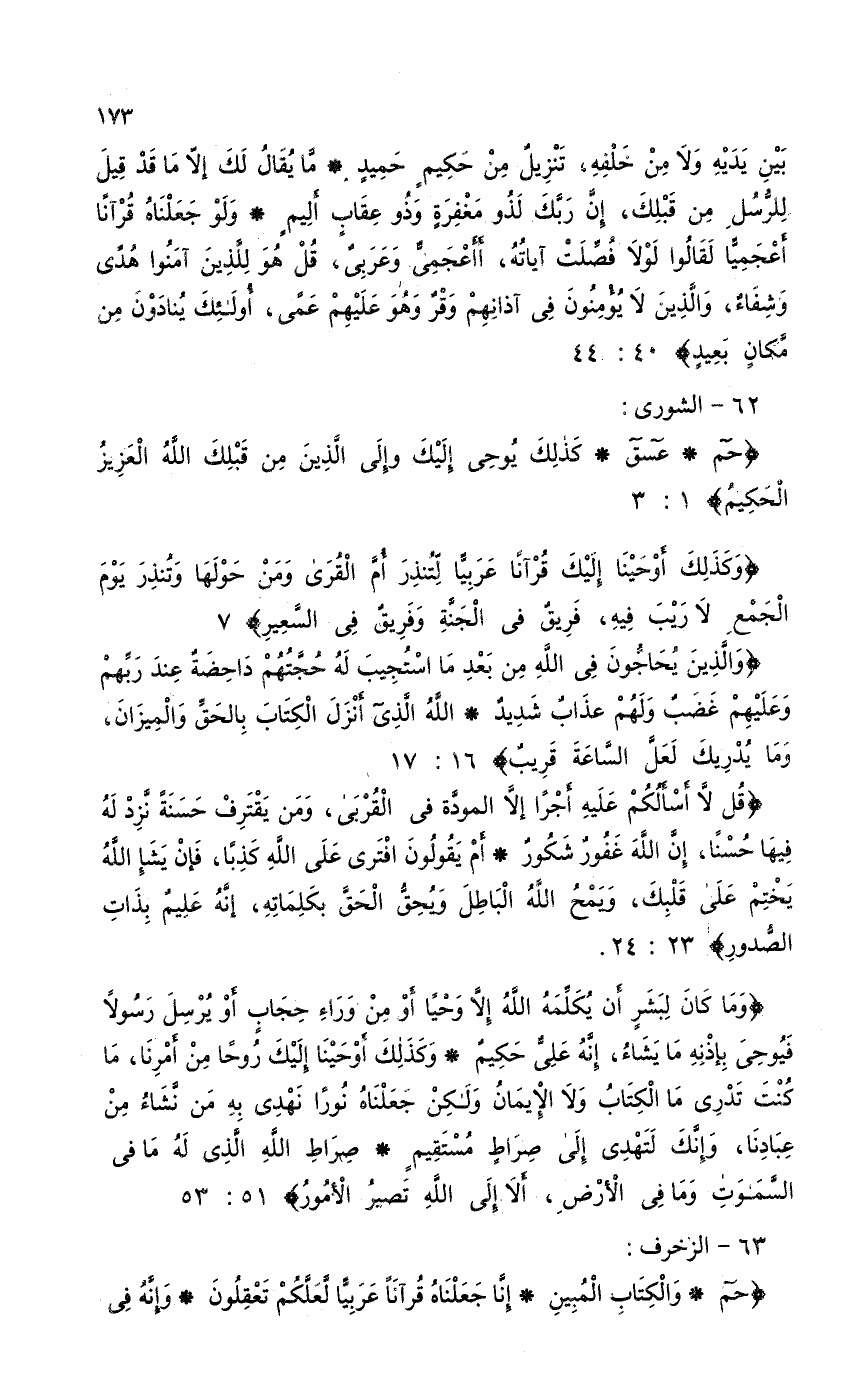 ١٧٣
بَيْنِ يَدَيْهِ وَلَا مِنْ خَلْفِهِ، تَنْزِيلٌ مِنْ حَكِيمٍ حَمِيدٍ * مَّا يُقَالُ لَكَ إلّا مَا قَدْ قِيلَ
لِلرُّسُلِ مِن قَبْلِكَ، إِنَّ رَبَّكَ لَذُو مَغْفِرَةٍ وَذُو عِقَابٍ أَلِيمٍ * وَلَوْ جَعَلْنَاهُ قُرْآنًا
أَعْجَمِيًّا لَقَالُوا لَوْلَا فُصِّلَتْ آياتُهُ، أَأَعْجَمِىٌّ وَعَرَبِىٌ، قُلْ هُوَ لِلَّذِينَ آمَنُوا هُدًى
وَشِفَاءٌ، وَالَّذِينَ لَا يُؤْمِنُونَ فِى آذانِهِمْ وَقْرٌ وَهُوَ عَلَيْهِمْ عَمًى، أُولَـٰئِكَ يُنادَوْنَ مِن
مَّكانٍ بَعِيدٍ﴾ ٤٠ : ٤٤
٦٢ - الشورى :
﴿حَمٓ * عٓسٓقٓ * كَذٰلِكَ يُوحِى إِلَيْكَ وإِلَى الَّذِينَ مِن قَبْلِكَ اللَّهُ الْعَزِيزُ
الْحَكِيمُ﴾ ١ : ٣
﴿وَكَذَلِكَ أَوْحَيْنَا إِلَيْكَ قُرْآنًا عَرَبِيًّا لِّتُنذِرَ أُمَّ الْقُرَىٰ وَمَنْ حَوْلَهَا وَتُنذِرَ يَوْمَ
الْجَمْعِ لَا رَيْبَ فِيهِ، فَرِيقٌ فى الْجَنَّةِ وَفَرِيقٌ فِى السَّعِيرِ﴾ ٧
﴿وَالَّذِينَ يُحَاجُّونَ فِى اللَّهِ مِن بَعْدِ مَا اسْتُجِيبَ لَهُ حُجَّتُهُمْ دَاحِضَةٌ عِندَ رَبِّهِمْ
وَعَلَيْهِمْ غَضَبٌ وَلَهُمْ عذابٌ شَدِيدٌ * اللَّهُ الَّذِىٓ أَنْزَلَ الْكِتَابَ بِالحَقِّ وَالْمِيزَانَ،
وَمَا يُدْرِيكَ لَعَلَّ السَّاعَةَ قَرِيبٌ﴾ ١٦ : ١٧
﴿قُل لَّا أَسْأَلُكُمْ عَلَيهِ أَجْرًا إلَّا المودَّة فى الْقُرْبَىٰ، وَمَن يَقْتَرِفْ حَسَنَةً نَّزِدْ لَهُ
فِيهَا حُسْنًا، إِنَّ اللَّهَ غَفُورٌ شَكُورٌ * أَمْ يَقُولُونَ افْتَرى عَلَى اللَّهِ كَذِبًا، فَإِنْ يَشَإِ اللَّهُ
يَخْتِمْ عَلَىٰ قَلْبِكَ، وَيَمْحُ اللَّهُ الْبَاطِلَ وَيُحِقُّ الْحَقَّ بكَلِمَاتِهِ، إنَّهُ عَلِيمٌ بِذَاتِ
الصُّدورِ﴾ ٢٣ : ٢٤.
﴿وَمَا كَانَ لِبَشَرٍ أَن يُكَلِّمَهُ اللَّهُ إِلَّا وَحْيًا أَوْ مِنْ وَرَاءِ حِجَابٍ أَوْ يُرْسِلَ رَسُولاً
فَيُوحِىَ بِإِذْنِهِ مَا يَشَاءُ، إِنَّهُ عَلِىٌّ حَكِيمٌ * وَكَذَلِكَ أَوْحَيْنَا إِلَيْكَ رُوحًا مِنْ أَمْرِنَا، مَا
كُنْتَ تَدْرِى مَا الْكِتَابُ وَلَا الْإِيمَانُ وَلَـٰكِنْ جَعَلْنَاهُ نُورًا نَهْدِى بِهِ مَن نَّشَاءُ مِنْ
عِبَادِنَا، وَإِنَّكَ لَتَهْدِى إِلَىٰ صِرَاطٍ مُسْتَقِيمٍ * صِرَاطِ اللَّهِ الَّذِى لَهُ مَا فى
السَّمَـٰوَتِ وَمَا فِى الْأَرْضِ، أَلَا إِلَى اللَّهِ تَصيرُ الْأمُورُ﴾ ٥١ : ٥٣
٦٣ - الزخرف :
﴿حمٓ * وَالْكِتَابِ الْمُبِينِ * إِنَّا جَعَلْنَاهُ قُرآنَاً عَرَبِيًّا لَّعَلَّكُمْ تَعْقِلُونَ * وَإِنَّهُ فِى